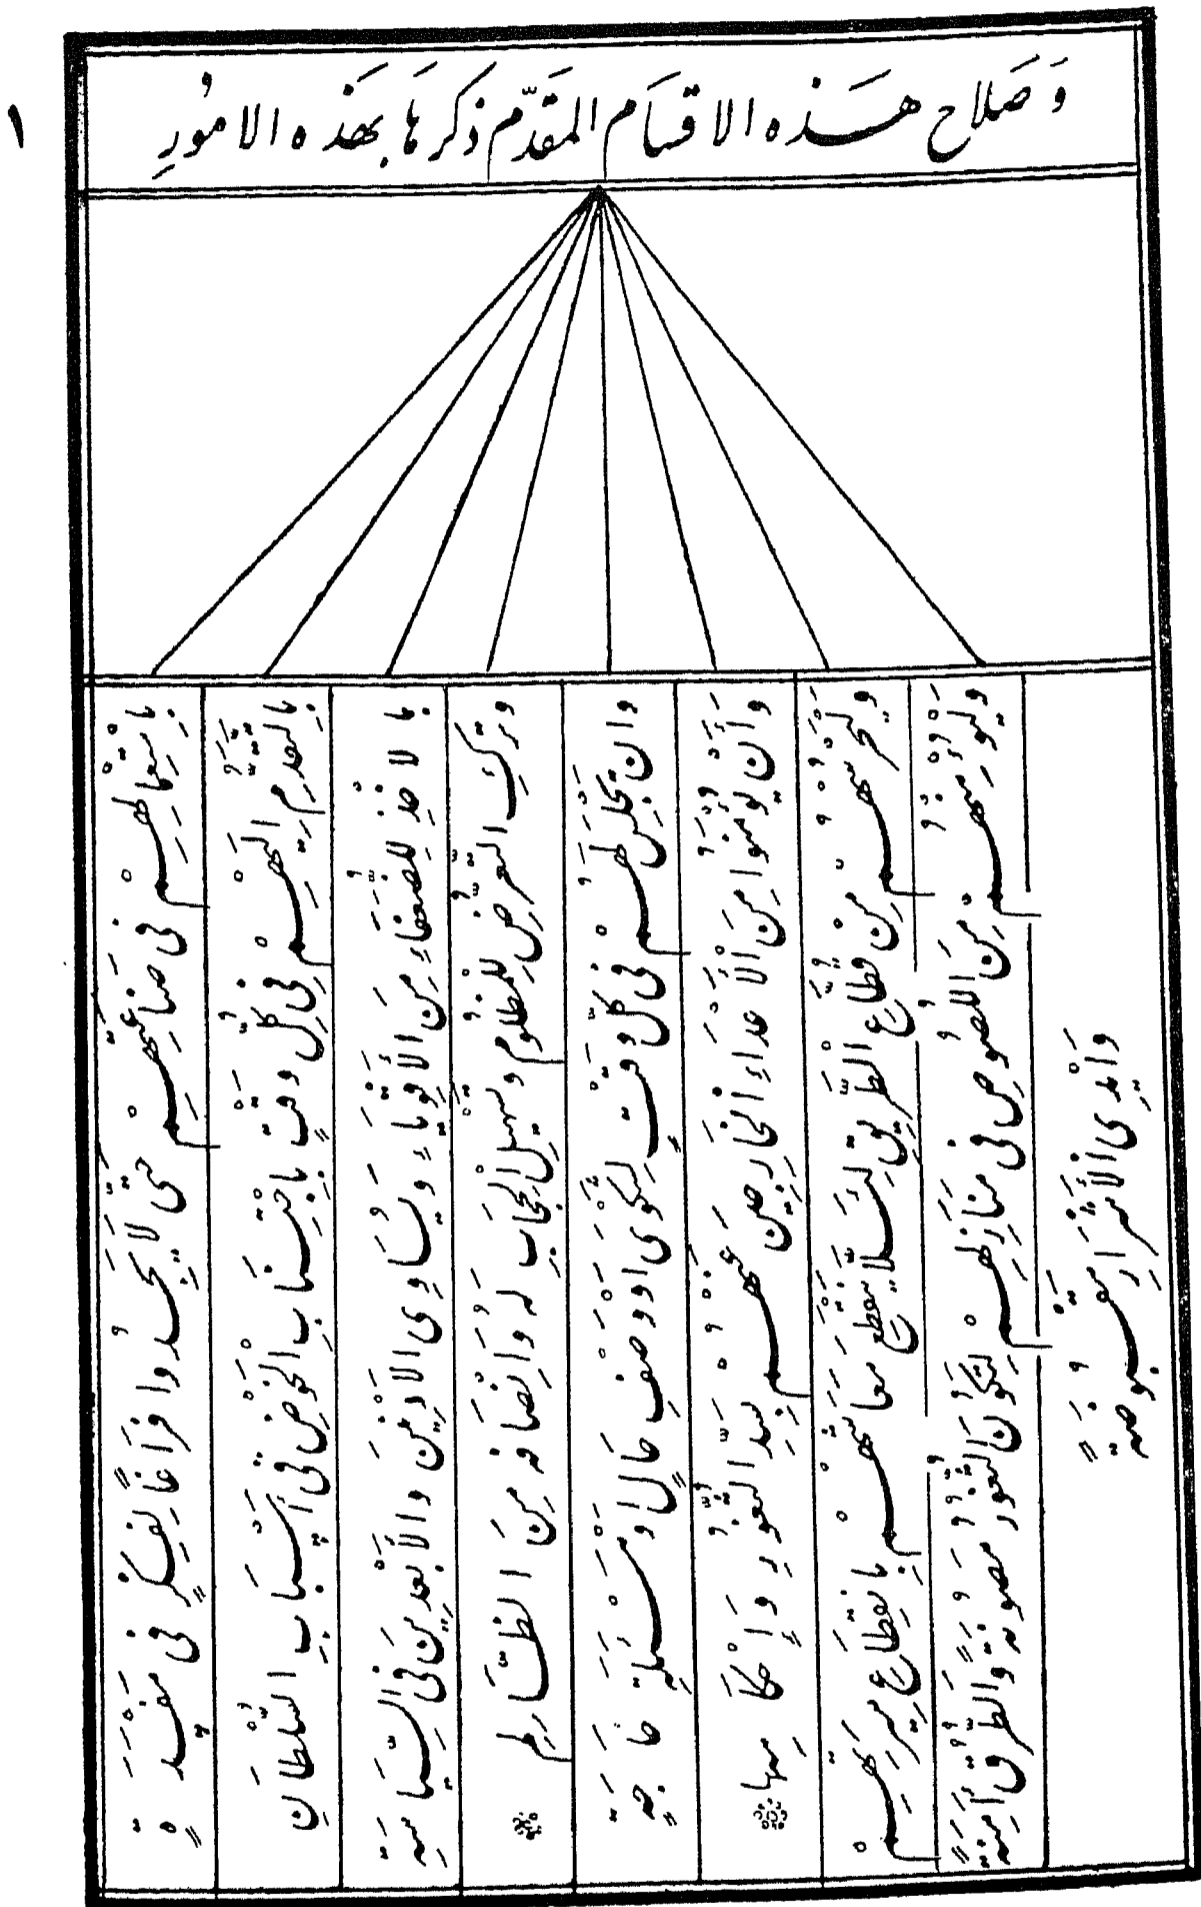 ١
وَصَلاح هَذه الاقسَام المقَدّم ذكرهَا بهَذه الامُورِ
وَليُؤْمنهُمْ مِنَ اللصُوصِ فى منَازلِهِمْ لتَكُونَ الثُّغُورُ مَصُونَةً وَالطُّرقُ آمِنَةً
وَأيْدِى الْأَشْرَارِ مَقْبُوضَةً
وَليَحْرسْهُمْ مِنْ قطَّاعِ الْطَّرِيقِ لِئَلَّا يَنْقَطعَ مَعَاشهُمْ بِانقِطَاعِ سَيْرِهِمْ
وَأَنْ يُؤمَنُوا مِنَ الْأَعْدَاءِ الْخَارِجِينَ عَنْهُمْ بِسَدِّ الثُّغُورِ وَإِحْكَامِهَا
وان تَجْلسَ لهُمْ فى كلّ وَقْتٍ لِشَكْوَى اوْ وَصْفِ حَالٍ اوْ مَسْئَلَةِ حَاجَةٍ
وَتَركِ التَّعَرّضِ لِلمَظلُومِ وَتَسْهيلِ الْحجَابِ لهُ وَانصَافهِ مِنَ الظَّالِمِ
بالاخْذِ لِلضُّعَفَاءِ مِنَ الأَقْوِيَاءِ وَيُسَاوِى الأدْنَيْنَ وَالأَبْعَدِينَ فى السِّيَاسَةِ
بِالتَّقَدُّمِ الَيْهِمْ فِى كُلِّ وَقْتٍ بِاجْتِنَابِ الْخَوْضِ فى اَسْبَابِ السُّلْطَانِ
بِاسْتِعْمَالِهِمْ فى صَنَائِعِهِمْ حَتّى لَا يَجِدُوا فَرَاغاً لِفِكْرٍ فى مَفْسَدَةٍ